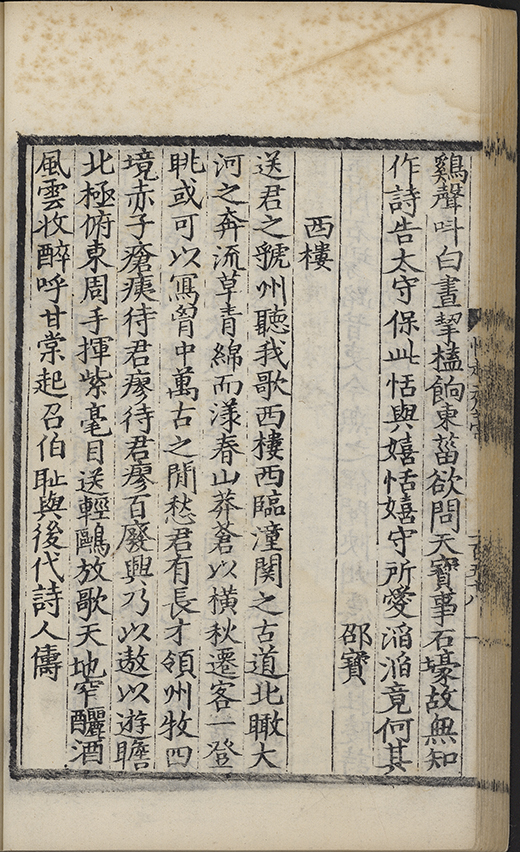 鷄聲呌白晝挈榼餉東菑欲問天寶事石壕故無知
作詩告太守保此恬與嬉恬嬉守所愛滔滔竟何其
邵寶
西樓
送君之虢州聽我歌西樓西臨潼関之古道北瞰大
河之奔流草青綿而漾春山莽蒼以橫秋遷客一登
眺或可以冩胷中萬古之閒愁君有長才領州牧四
境赤子瘡痍待君瘳待君瘳百廢興乃以遨以遊瞻
北極俯東周手揮紫毫目送輕鷗放歌天地窄釃酒
風雲收醉呼甘棠起召伯恥與後代詩人儔